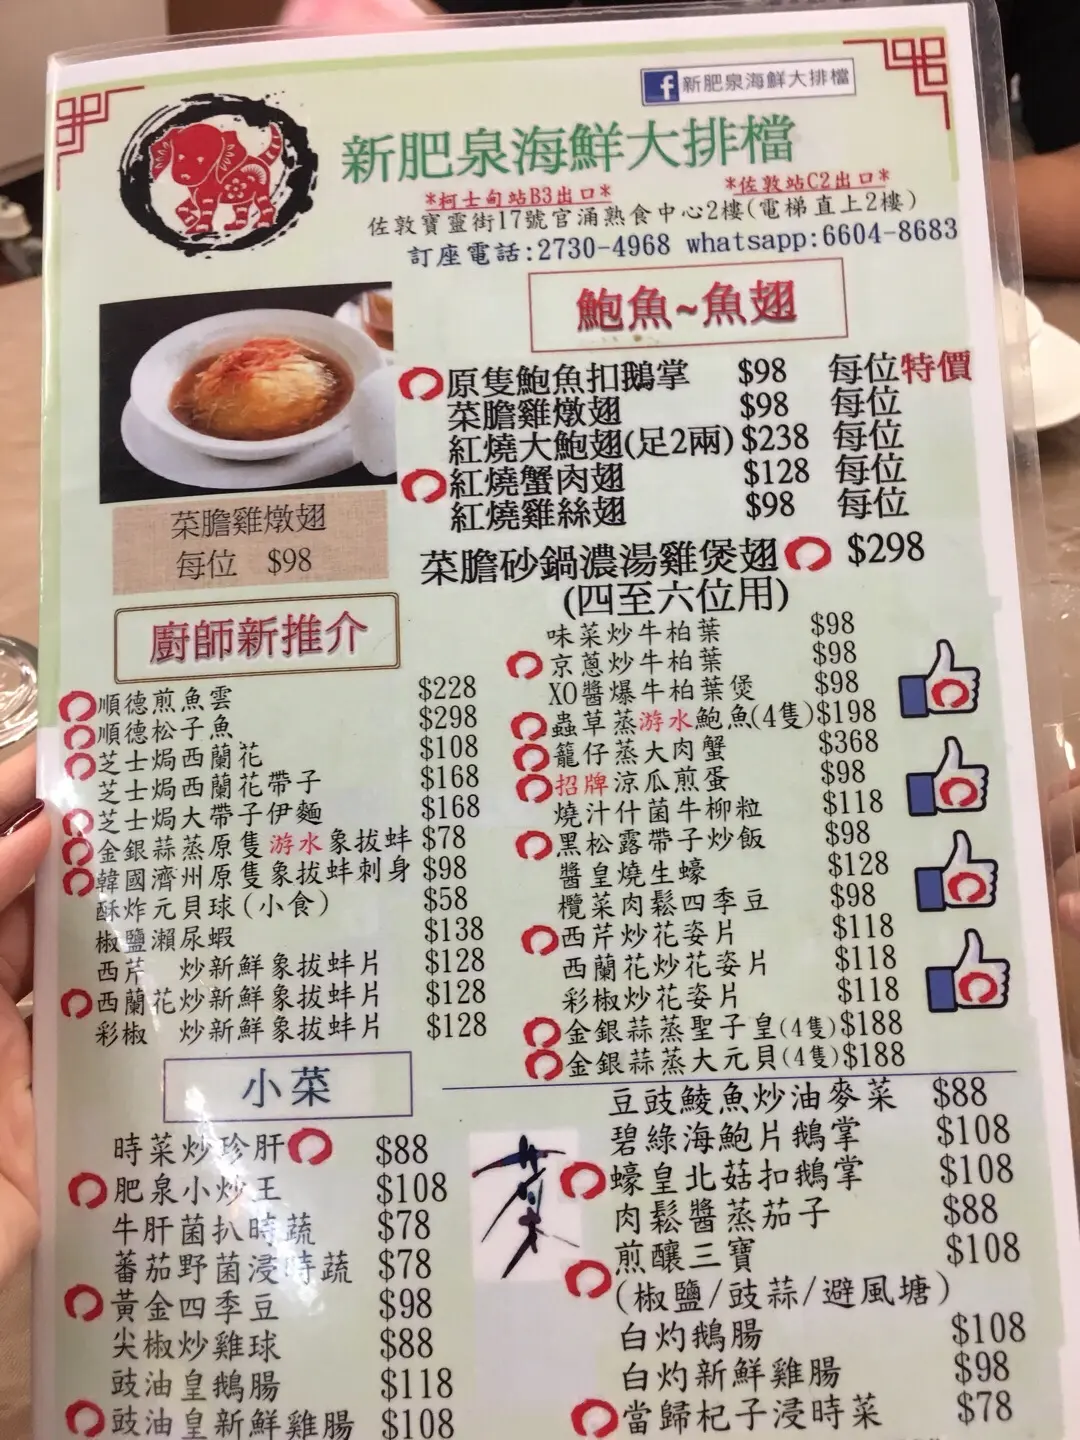 新肥泉海鮮大排檔
新肥泉海鮮大排檔
*柯士甸站B3出口* *佐敦站C2出口*
佐敦寶靈街17號官涌熟食中心2樓(電梯直上2樓)
訂座電話:2730-4968 whatsapp:6604-8683
鮑魚~魚翅
原隻鮑魚扣鵝掌 $98 每位特價
菜膽雞燉翅 $98 每位
紅燒大鮑翅(足2兩) $238 每位
紅燒蟹肉翅 $128 每位
紅燒雞絲翅 $98 每位
菜膽砂鍋濃湯雞煲翅 $298
(四至六位用)
菜膽雞燉翅
每位 $98
廚師新推介
順德煎魚雲 $228
順德松子魚 $298
芝士焗西蘭花 $108
芝士焗西蘭花帶子 $168
芝士焗大帶子伊麵 $168
金銀蒜蒸原隻游水象拔蚌 $78
韓國濟州原隻象拔蚌刺身 $98
酥炸元貝球(小食) $58
椒鹽瀨尿蝦 $138
西芹 炒新鮮象拔蚌片 $128
西蘭花炒新鮮象拔蚌片 $128
彩椒 炒新鮮象拔蚌片 $128
味菜炒牛柏葉 $98
京蔥炒牛柏葉 $98
XO醬爆牛柏葉煲 $98
蟲草蒸游水鮑魚(4隻) $198
籠仔蒸大肉蟹 $368
招牌涼瓜煎蛋 $98
燒汁什菌牛柳粒 $118
黑松露帶子炒飯 $98
醬皇燒生蠔 $128
欖菜肉鬆四季豆 $98
西芹炒花姿片 $118
西蘭花炒花姿片 $118
彩椒炒花姿片 $118
金銀蒜蒸聖子皇(4隻) $188
金銀蒜蒸大元貝(4隻) $188
小菜
時菜炒珍肝 $88
肥泉小炒王 $108
牛肝菌扒時蔬 $78
蕃茄野菌浸時蔬 $78
黃金四季豆 $98
尖椒炒雞球 $88
豉油皇鵝腸 $118
豉油皇新鮮雞腸 $108
菜
豆豉鯪魚炒油麥菜 $88
碧綠海鮑片鵝掌 $108
蠔皇北菇扣鵝掌 $108
肉鬆醬蒸茄子 $88
煎釀三寶 $108
(椒鹽/豉蒜/避風塘)
白灼鵝腸 $108
白灼新鮮雞腸 $98
當歸杞子浸時菜 $78